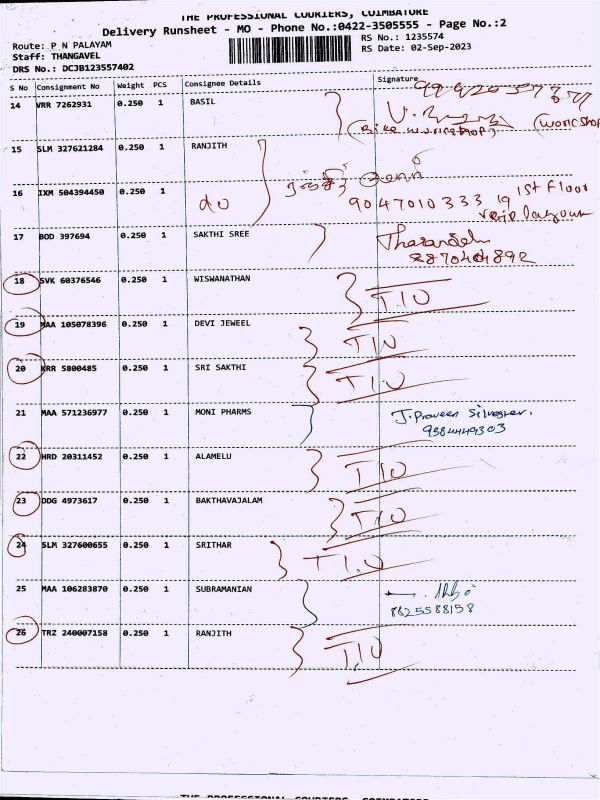 THE PROFESSIONAL COURIERS, COIMBATORE
Delivery Runsheet - MO - Phone No.:0422-3505555 - Page No.:2
Route: P N PALAYAM
RS No.: 1235574
Staff: THANGAVEL
RS Date: 02-Sep-2023
DRS No.: DCJB123557402
S No Consignment No Weight PCS Consignee Details Signature
14 VRR 7262931 0.250 1 BASIL
(Bike workshop) (workshop
15 SLM 327621284 0.250 1 RANJITH
16 IXM 504394450 0.250 1 do 9047010333 19 1st Floor
layout
17 BOD 397694 0.250 1 SAKTHI SREE
8870404892
18 SVK 60376546 0.250 1 WISWANATHAN T10
19 MAA 105078396 0.250 1 DEVI JEWEEL T10
20 KRR 5800485 0.250 1 SRI SAKTHI T1.0
21 MAA 571236977 0.250 1 MONI PHARMS J. Praveen Silvester.
9384449303
22 HRD 20311452 0.250 1 ALAMELU T10
23 DDG 4973617 0.250 1 BAKTHAVAJALAM T10
24 SLM 327600655 0.250 1 SRITHAR T1.0
25 MAA 106283870 0.250 1 SUBRAMANIAN
8625588158
26 TRZ 240007158 0.250 1 RANJITH T10
THE PROFESSIONAL COURIERS, COIMBATORE